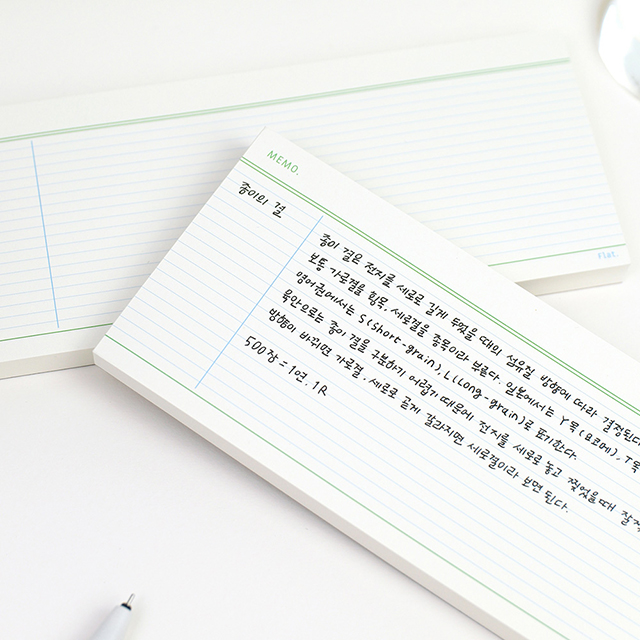 MEMO.
종이의 결
종이 결은 전지를 세로로 길게 두었을 때의 섬유질 방향에 따라 결정된다
보통 가로결을 횡목, 세로결을 종목이라 부른다. 일본에서는 Y목(요꼬메), T목
영어권에서는 S(short-grain), L(Long-grain)로 표기한다.
육안으로는 종이 결을 구분하기 어렵기 때문에 전지를 세로로 놓고 찢었을때
방향이 바뀌면 가로결, 세로로 곧게 갈라지면 세로결이라 보면 된다.
500장 = 1연. 1R
Flat.